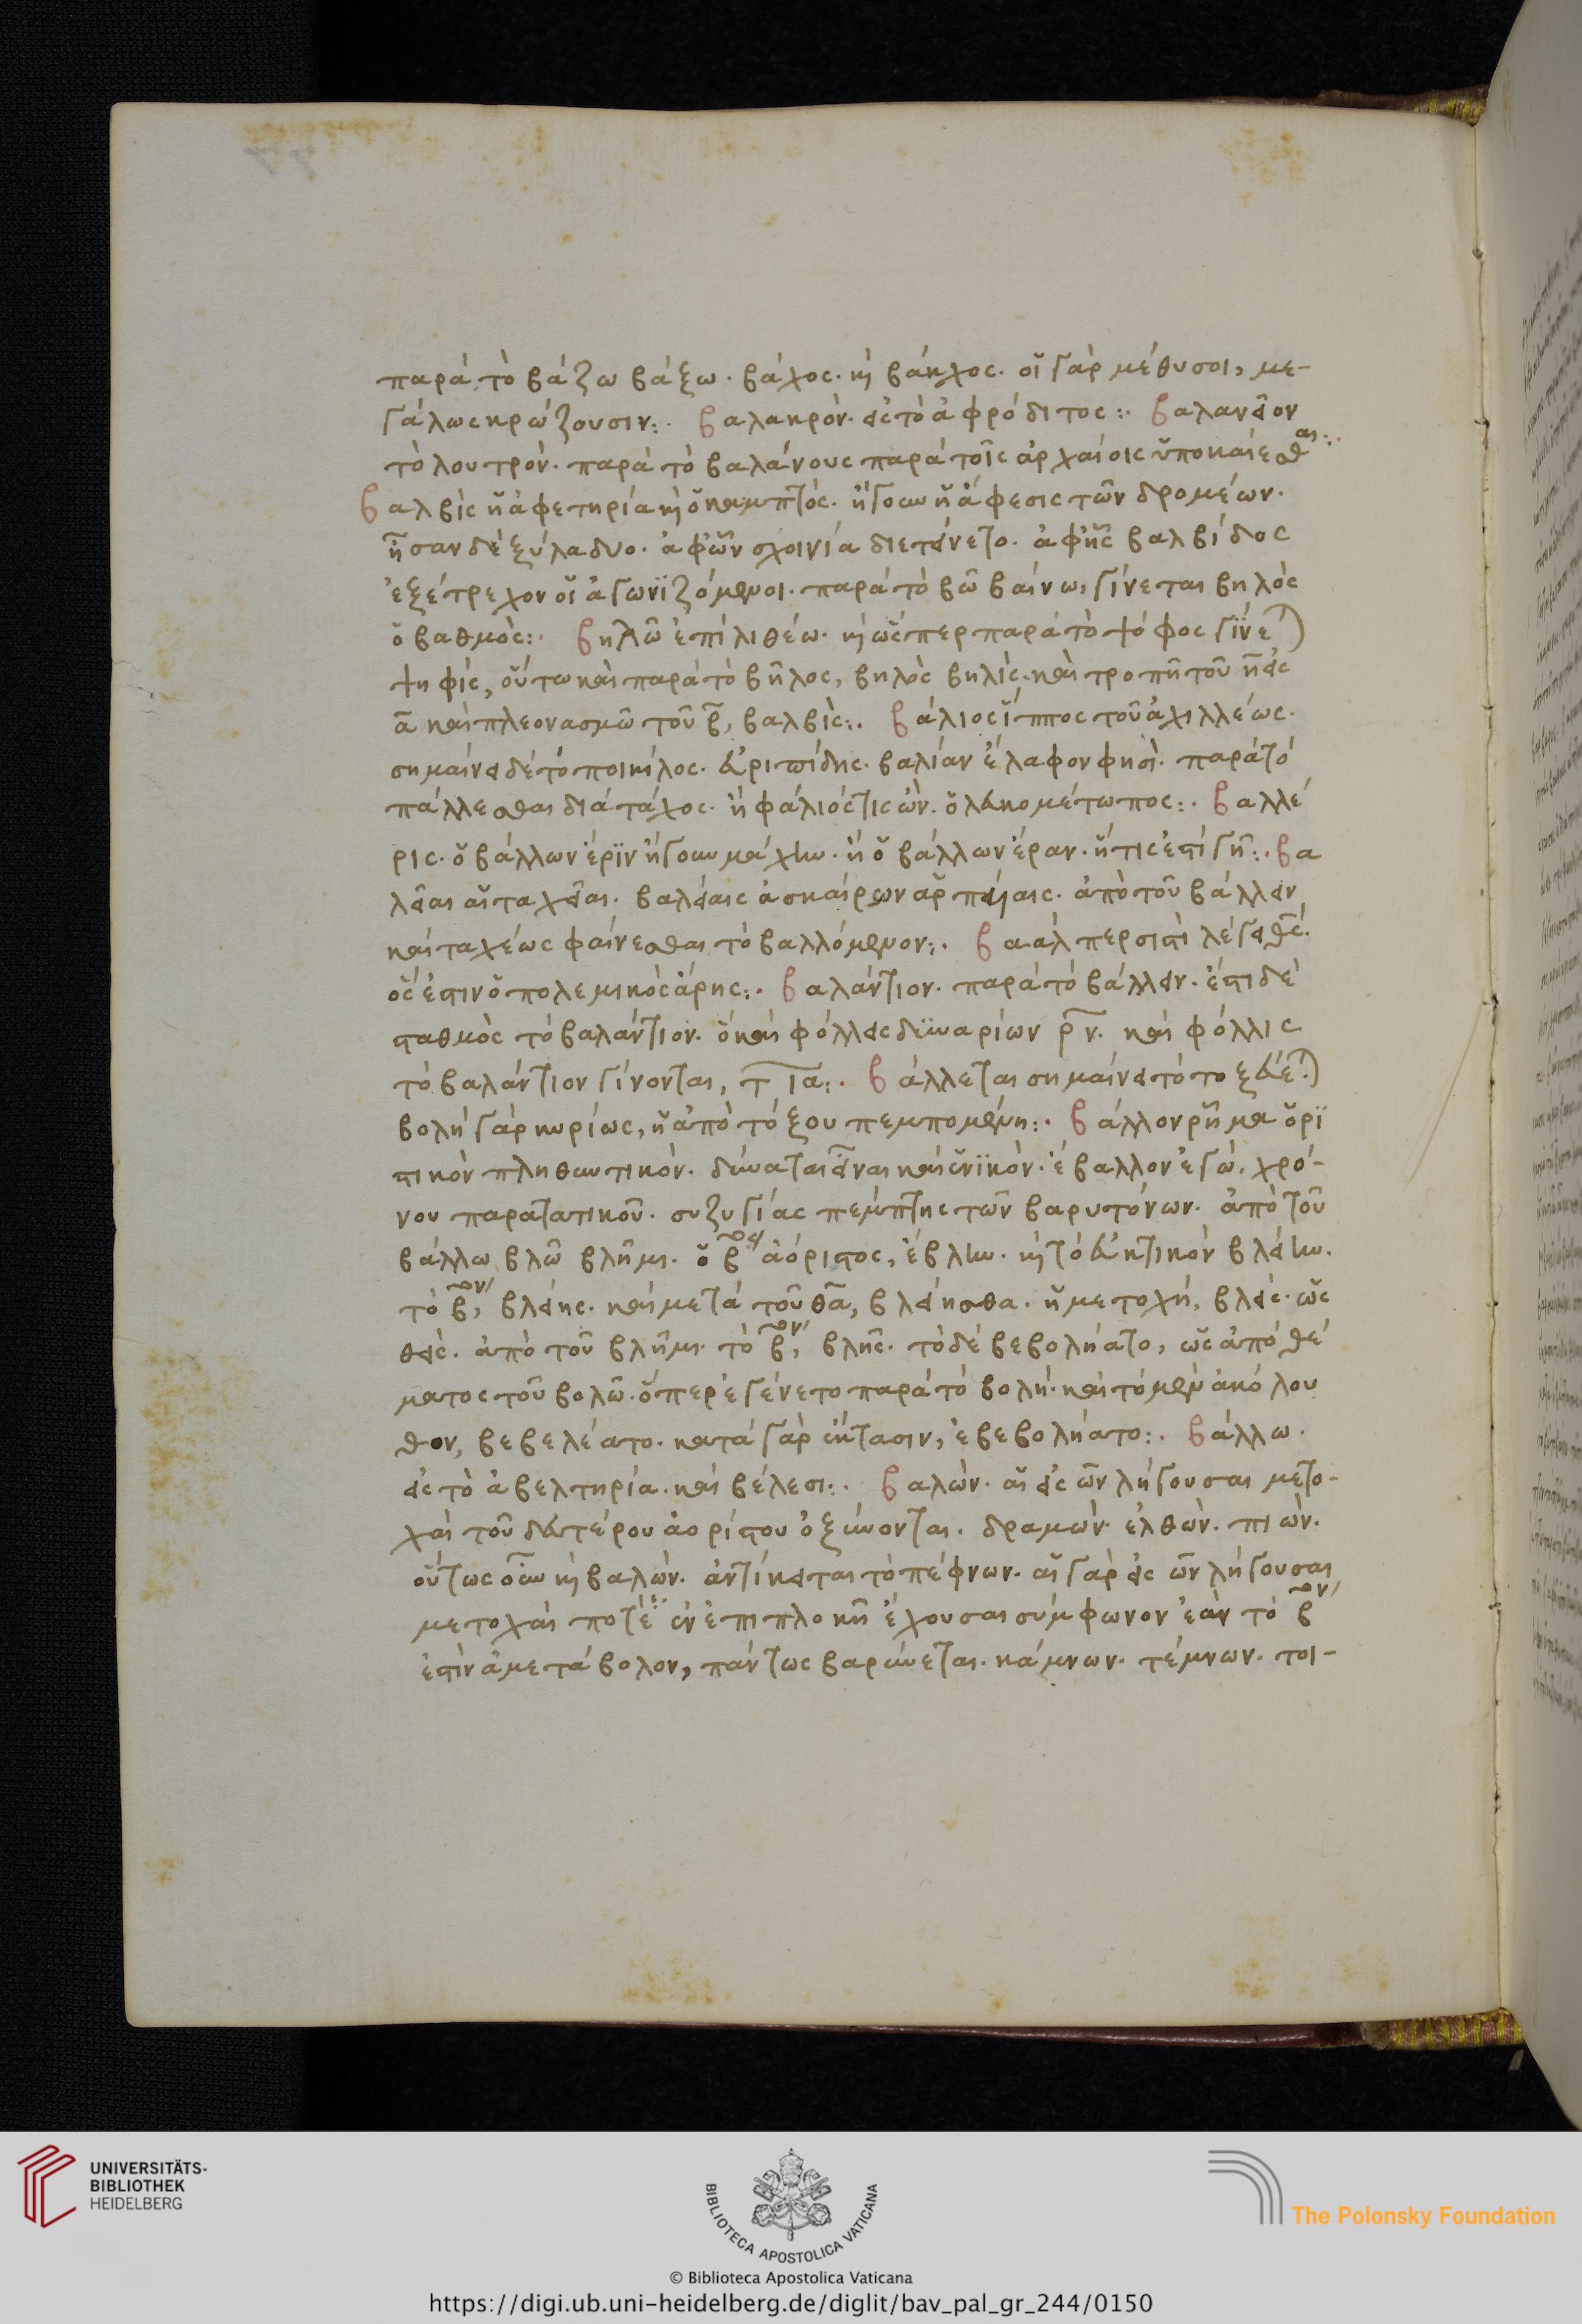 παρὰ τὸ βάζω βάξω· βάχος· κὶ βάκχος· οἱ γὰρ μέθυσοι, με-
γάλως κράζουσιν:· βαλακρόν· εἰς τὸ ἀφρόδιτος:· βαλανεῖον
τὸ λουτρόν· παρὰ τὸ βαλάνους παρὰ τοῖς ἀρχαίοις ὑποκαίεσθαι:·
βαλβὶς ἡ ἀφετηρία κὶ ὁ καμπτός· ἤγουν ἡ ἄφεσις τῶν δρομέων·
ἦσαν δὲ ξύλα δυο· ἀφῶν σχοινία διετείνετο· ἀφῆς βαλβίδος
ἐξέτρεχον οἱ ἀγωνϊζόμενοι· παρὰ τὸ βῶ βαίνω, γίνεται βηλὸς
ὁ βαθμὸς:· βηλῶ ἐπὶ λιθέω· κὶ ὥσπερ παρὰ τὸ ψόφος γίνε)
ψηφίς, οὕτω καὶ παρὰ τὸ βῆλος, βηλὸς βηλὶς· καὶ τροπῆ τοῦ η εἰς
α καὶ πλεονασμῶ τοῦ β, βαλβὶς:· βάλιος ἵππος τοῦ ἀχιλλέως·
σημαίνει δὲ τὸ ποικίλος· εὐριπίδης· βαλίαν ἔλαφον φησὶ· παρὰ τὸ
πάλλεσθαι διὰ τάχος· ἢ φάλιός τις ὢν· ὁ λευκομέτωπος:· βαλλέ
ρις· ὁ βάλλων ἔρϊν ἤγουν μάχην· ἢ ὁ βάλλων ἔραν· ἥτις ἐστὶ γῆ:· βα
λεῖαι αἱ ταχεῖαι· βαλείαις ἀσκαίρων ἁρπυίαις· ἀπὸ τοῦ βάλλειν
καὶ ταχέως φαίνεσθαι τὸ βαλλόμενον:· βαὰλ περσιστὶ λέγεσθ
ὅς ἐστιν ὁ πολεμικὸς ἄρης:· βαλάντιον· παρὰ τὸ βάλλειν· ἔστι δὲ
σταθμὸς τὸ βαλάντιον· ὃ καὶ φόλλεις δϊναρίων ρ ν· καὶ φόλλις
τὸ βαλάντιον γίνονται, τ ια:· βάλλεται σημαίνει τὸ τοξεύε)
βολὴ γὰρ κυρίως, ἡ ἀπὸ τόξου πεμπομένη:· βάλλον ῥῆμα ὁρϊ
στικὸν πληθυντικόν· δύναται εἶναι καὶ ἑνϊκόν· ἔβαλλον ἐγώ· χρό-
νου παρατατικοῦ· συζυγίας πέμπτης τῶν βαρυτόνων· ἀπὸ τοῦ
βάλλω βλῶ βλῆμι· ὁ β ἀόριστος, ἔβλην· κὶ τὸ εὐκτικὸν βλείην·
τὸ β, βλείης· καὶ μετὰ τοῦ θα, βλείησθα· ἡ μετοχή, βλείς· ὡς
θείς· ἀπὸ τοῦ βλῆμι· τὸ β, βλῆς· τὸ δὲ βεβολήατο, ὡς ἀπὸ θέ
ματος τοῦ βολῶ· ὅπερ ἐγένετο παρὰ τὸ βολή· καὶ τὸ μὲν ἀκόλου
θον, βεβελέατο· κατὰ γὰρ ἔκτασιν, ἐβεβολήατο:· βάλλω·
εἰς τὸ ἀβελτηρία· καὶ βέλεσι:· βαλών· αἱ εἰς ων λήγουσαι μετο-
χαὶ τοῦ δευτέρου ἀορίστου ὀξύνονται· δραμών· ἐλθών· πιών·
οὕτως οὖν κὶ βαλών· ἀντίκειται τὸ πέφνων· αἱ γὰρ εἰς ων λήγουσαι
μετοχαὶ ποτὲ ἐν ἐπιπλοκῆ ἔχουσαι σύμφωνον ἐὰν τὸ β
ἐστὶν ἀμετάβολον, πάντως βαρύνεται· κάμνων· τέμνων· τοι-
UNIVERSITÄTS-
BIBLIOTHEK
HEIDELBERG
BIBLIOTECA APOSTOLICA VATICANA
The Polonsky Foundation
© Biblioteca Apostolica Vaticana
https://digi.ub.uni-heidelberg.de/diglit/bav_pal_gr_244/0150